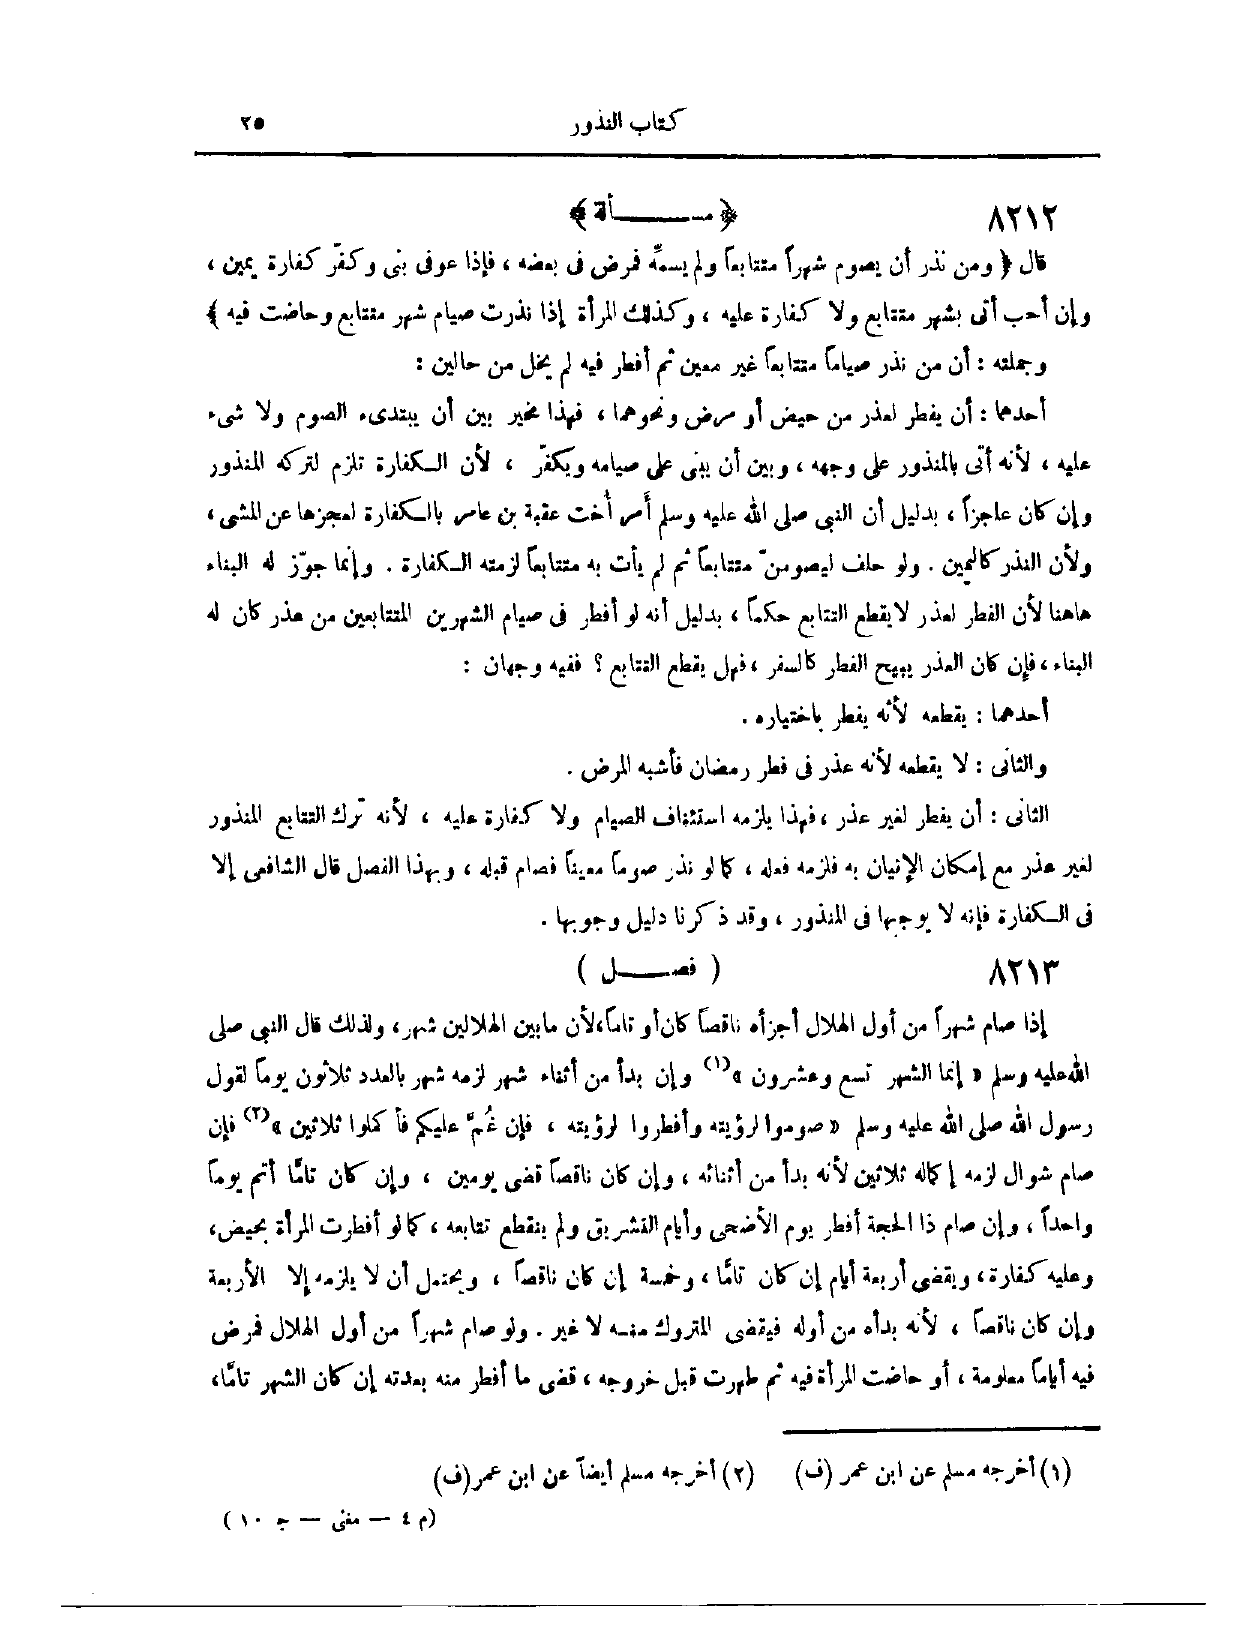 كتاب النذور ٢٥
٨٢١٢ ﴿ مسألة ﴾
قال ﴿ ومن نذر أن يصوم شهراً متتابعاً ولم يسمِّه فمرض فى بعضه ، فإذا عوفى بنى وكفّر كفارة يمين ،
وإن أحب أتى بشهر متتابع ولا كفارة عليه ، وكذلك المرأة إذا نذرت صيام شهر متتابع وحاضت فيه ﴾
وجملته : أن من نذر صياماً متتابعاً غير معين ثم أفطر فيه لم يخل من حالين :
أحدهما : أن يفطر لعذر من حيض أو مرض ونحوهما ، فهذا مخير بين أن يبتدىء الصوم ولا شىء
عليه ، لأنه أتى بالمنذور على وجهه ، وبين أن يبنى على صيامه ويكفّر ، لأن الكفارة تلزم لتركه المنذور
وإن كان عاجزاً ، بدليل أن النبى صلى الله عليه وسلم أمر أخت عقبة بن عامر بالكفارة لعجزها عن المشى ،
ولأن النذر كاليمين . ولو حلف ليصومنّ متتابعاً ثم لم يأت به متتابعاً لزمته الكفارة . وإنما جوّز له البناء
هاهنا لأن الفطر لعذر لا يقطع التتابع حكماً ، بدليل أنه لو أفطر فى صيام الشهرين المتتابعين من عذر كان له
البناء ، فإن كان العذر يبيح الفطر كالسفر ، فهل يقطع التتابع ؟ ففيه وجهان :
أحدهما : يقطعه لأنه يفطر باختياره .
والثانى : لا يقطعه لأنه عذر فى فطر رمضان فأشبه المرض .
الثانى : أن يفطر لغير عذر ، فهذا يلزمه استئناف الصيام ولا كفارة عليه ، لأنه ترك التتابع المنذور
لغير عذر مع إمكان الإتيان به فلزمه فعله ، كما لو نذر صوماً معيناً فصام قبله ، وبهذا الفصل قال الشافعى إلا
فى الكفارة فإنه لا يوجبها فى المنذور ، وقد ذكرنا دليل وجوبها .
٨٢١٣ ( فصل )
إذا صام شهراً من أول الهلال أجزأه ناقصاً كان أو تاماً ، لأن مابين الهلالين شهر ، ولذلك قال النبى صلى
الله عليه وسلم « إنما الشهر تسع وعشرون »(١) وإن بدأ من أثناء شهر لزمه شهر بالعدد ثلاثون يوماً لقول
رسول الله صلى الله عليه وسلم « صوموا لرؤيته وأفطروا لرؤيته ، فإن غُمَّ عليكم فأكملوا ثلاثين »(٢) فإن
صام شوال لزمه إكماله ثلاثين لأنه بدأ من أثنائه ، وإن كان ناقصاً قضى يومين ، وإن كان تامًّا أتم يوماً
واحداً ، وإن صام ذا الحجة أفطر يوم الأضحى وأيام التشريق ولم ينقطع تتابعه ، كما لو أفطرت المرأة بحيض ،
وعليه كفارة ، ويقضى أربعة أيام إن كان تامًّا ، وخمسة إن كان ناقصاً ، ويحتمل أن لا يلزمه إلا الأربعة
وإن كان ناقصاً ، لأنه بدأه من أوله فيقضى المتروك منه لا غير . ولو صام شهراً من أول الهلال فمرض
فيه أياماً معلومة ، أو حاضت المرأة فيه ثم طهرت قبل خروجه ، قضى ما أفطر منه بعدته إن كان الشهر تامًّا ،
(١) أخرجه مسلم عن ابن عمر (ف) (٢) أخرجه مسلم أيضاً عن ابن عمر (ف)
(م ٤ — مغنى — ج ١٠ )